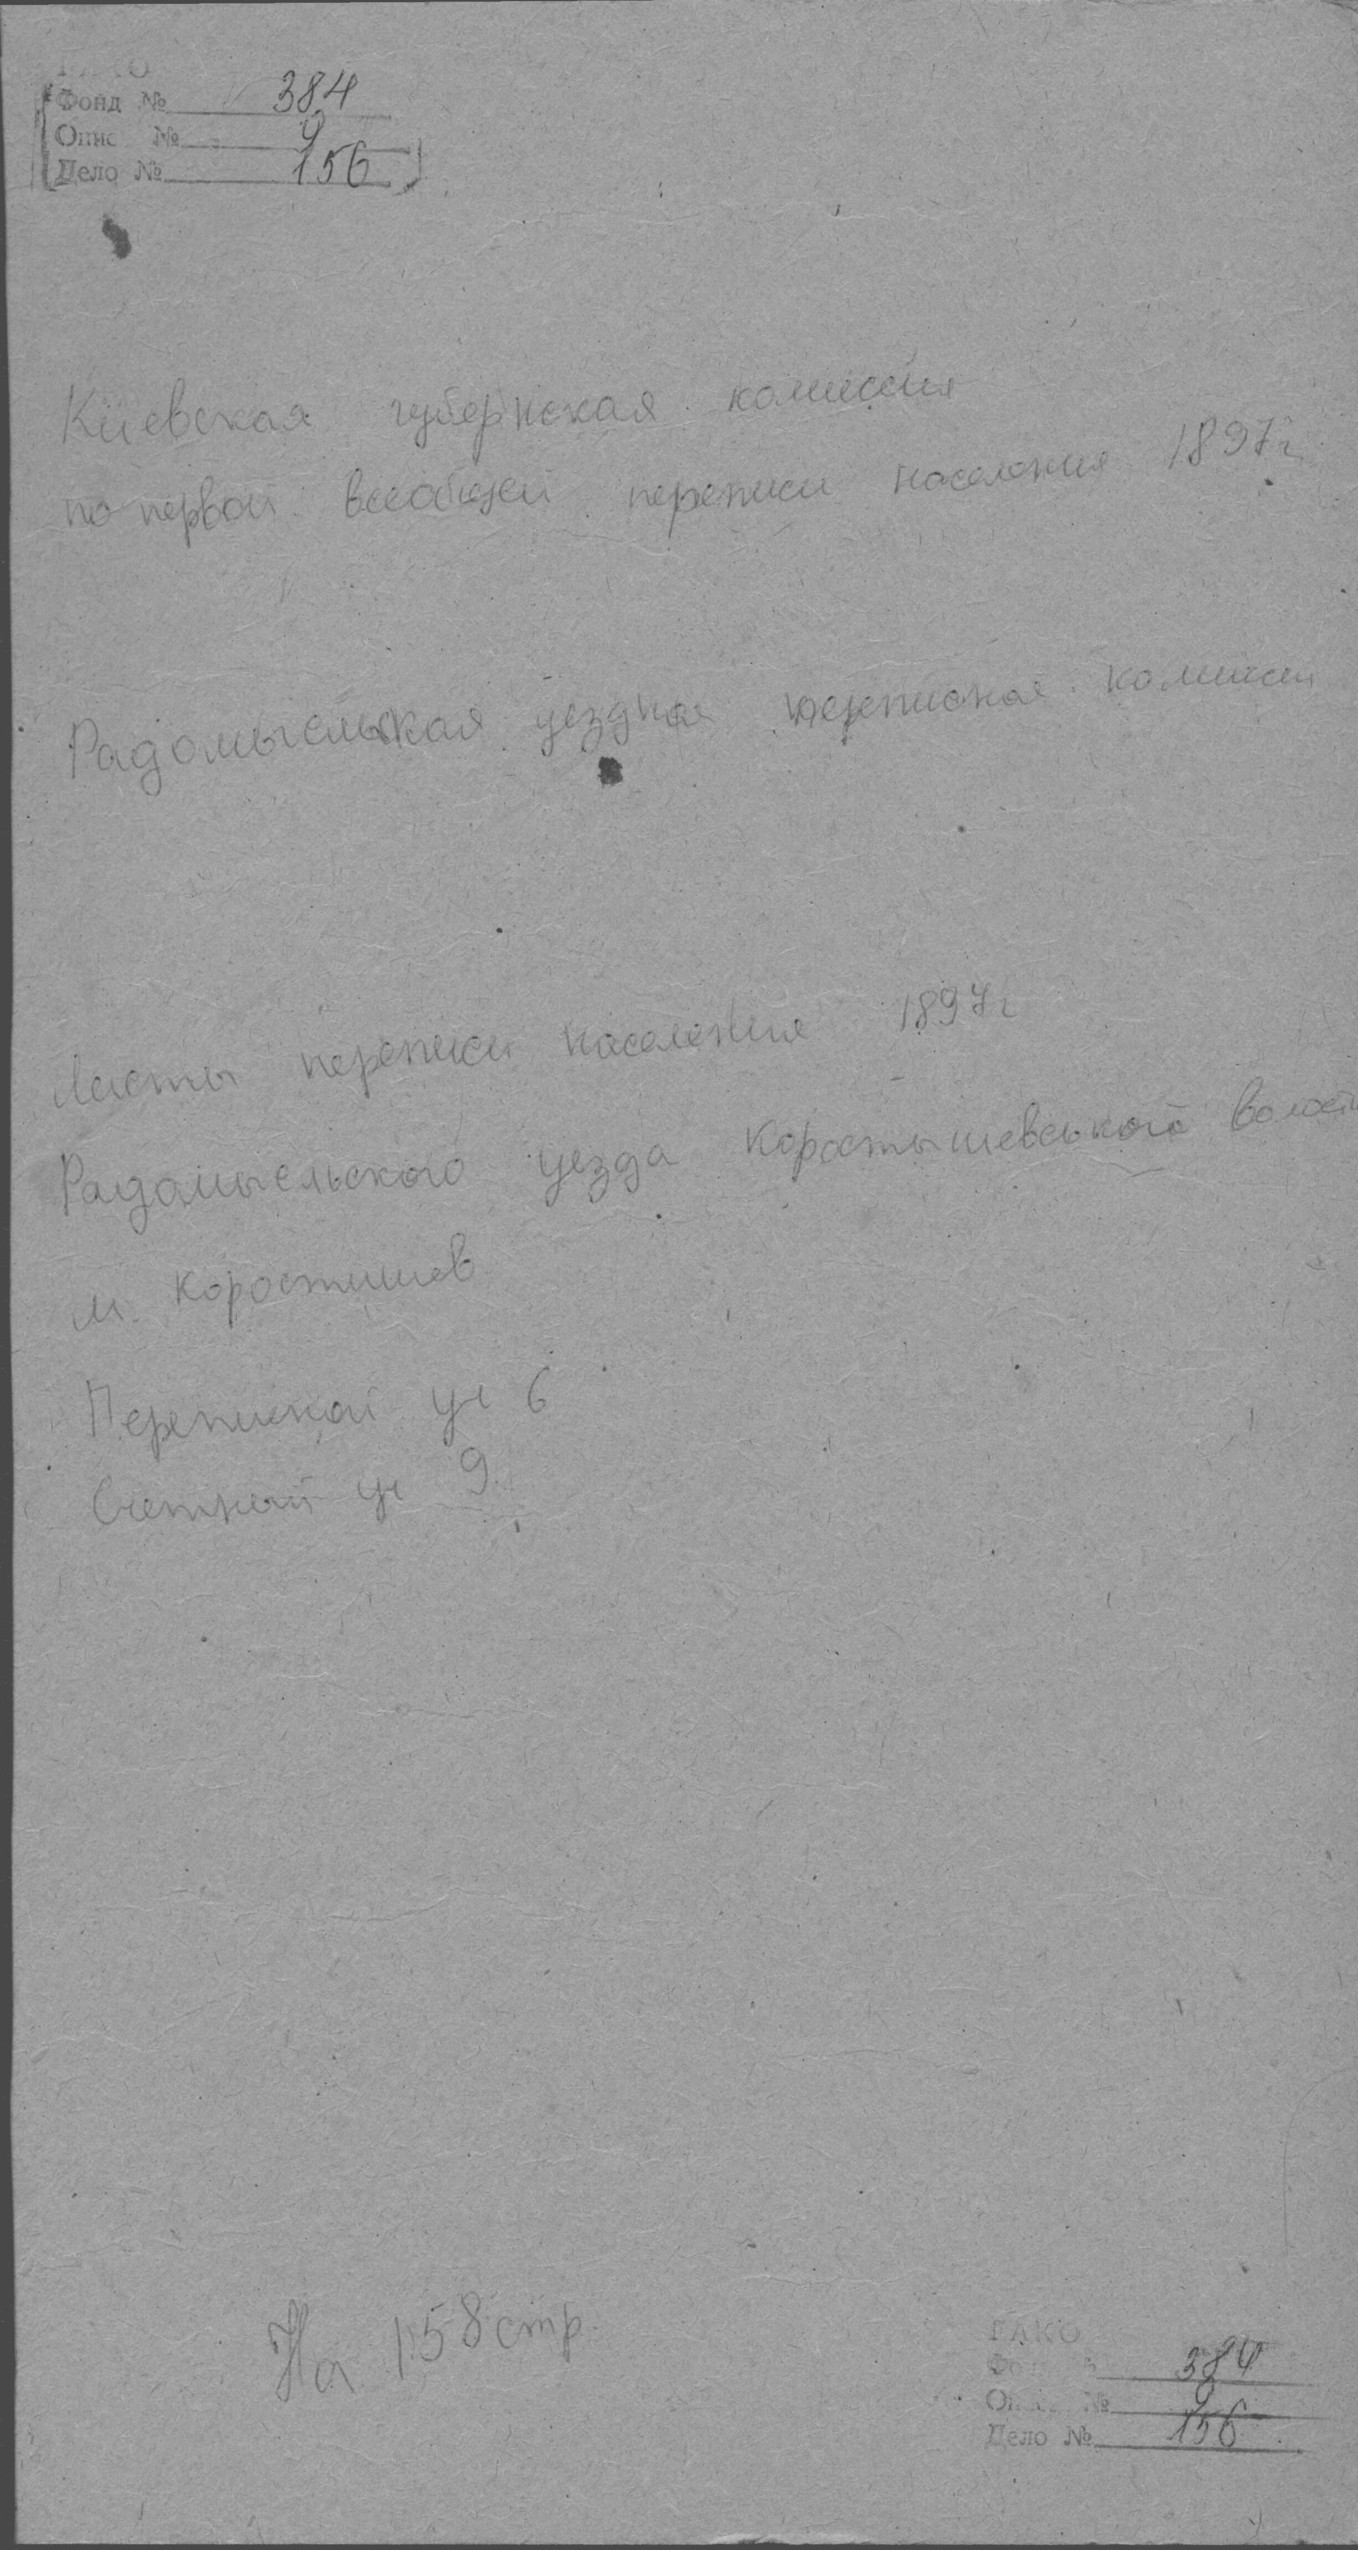 Фонд № 384
Опис № 9
Дело № 156
Киевская губернская комиссия
по первой всеобщей переписи населения 1897г
Радомысльская уездная переписная комиссия
Листы переписи населения 1897г
Радомысльского уезда Коростышевської волости
м. Коростишев
Переписной уч 6
Счетный уч 9
На 158 стр.
ГАКО
384
9
Дело № 156